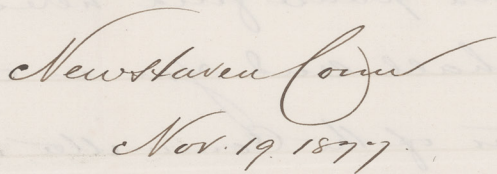 New Haven Conn
Nov. 19. 1877.